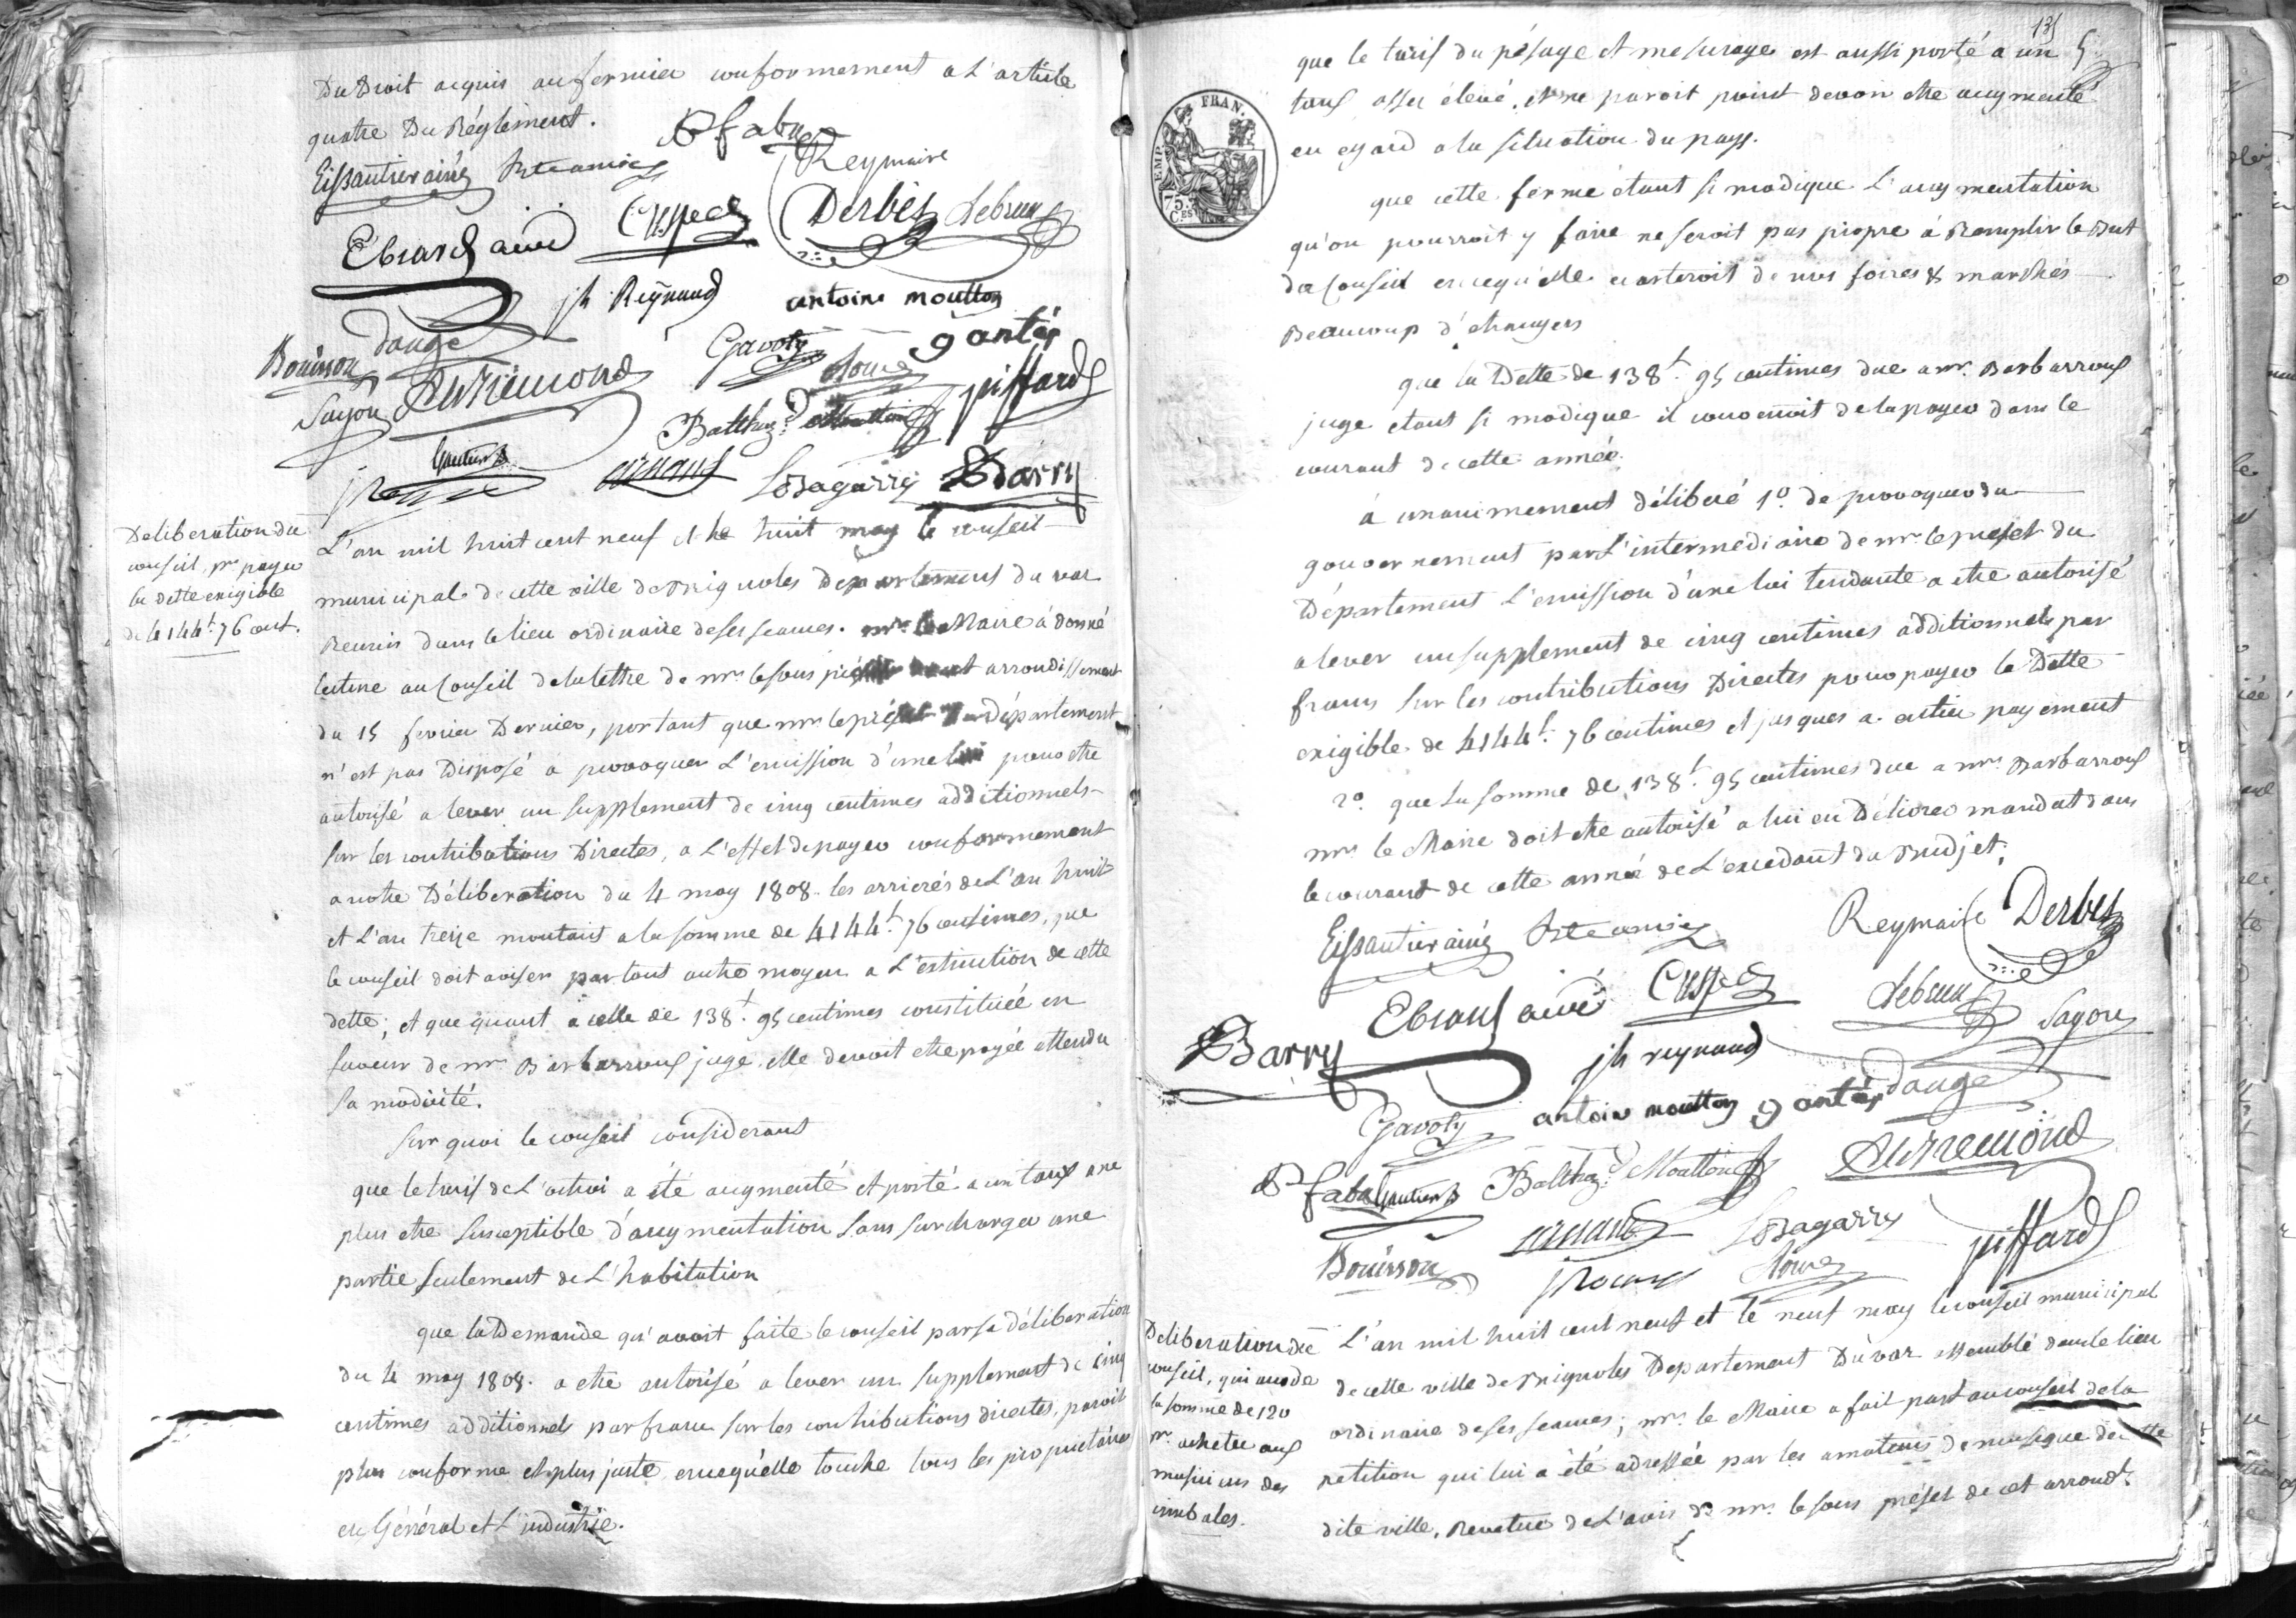 Du Droit acquis au fermier conformement a L'article
quatre Du Réglement.
Fabre
Eissautier ainé
Reymaire
Ebrard ainé
Derbés
Lebrun
jh Reynaud
antoine moutton
dauge
Gavoty
gantés
Bouisson
Auzremond
piffard
Sayou
Balthaz.d Moutton
Gautier
arnaud
LBagarry
Barry
Deliberation du
conseil, pr. payer
la dette exigible
de 4144f. 76 cent.
L'an mil huit cent neuf et le huit may le conseil
municipal de cette ville de Brignoles Departement du var
Reunis dans le lieu ordinaire de ses seances. mr. le Maire à donné
lecture au Conseil de la lettre de mr. le sous préfet arrondissement
du 15 fevrier Dernier, portant que mr le préfet du département
n'est pas Disposé a provoquer L'emission d'une loi pour etre
autorisé a lever un supplement de cinq centimes additionnels
sur les contributions Directes, a L'effet de payer conformement
a notre Déliberation du 4 may 1808. les arrierés de L'an huit
et L'an treize montant a la somme de 4144f. 76 centimes, que
le conseil doit aviser par tout autre moyen a L'extinction de cette
dette; et que quant a celle de 138f. 95 centimes constituée en
faveur de mr Barbarroux juge. elle devoit etre payée attendu
sa modicité.
Sur quoi le conseil considerant
que le tarif de L'octroi a été augmenté et porté a un taux a ne
plus etre susceptible d'augmentation sans surcharger une
partie seulement de L'habitation
que la Demande qu'avoit faite le conseil par sa déliberation
du 4 may 1808. a etre autorisé a lever un supplement de cinq
centimes additionnels par franc sur les contributions directes, paroit
plus conforme et plus juste, en ce qu'elle touche tous les proprietaires
en Général et L'industrie.
135
que le tarif du pésage et mesurage est aussi porté a un
taux assez élevé, et ne paroit point devoir etre augmenté
eu egard a la situation du pays.
EMP. FRAN.
75.
C.ES
que cette ferme étant si modique L'augmentation
qu'on pourroit y faire ne seroit pas propre à Remplir le But
du Conseil en ce qu'elle ecarteroit de nos foires & marchés
Beaucoup d'etrangers
que la Dette de 138f. 95 centimes due a mr. Barbarroux
juge etant si modique il convenoit de la payer dans le
courant de cette année.
à unanimement délibéré 1o. de provoquer du
gouvernement par L'intermediaire de mr. le prefet du
Département L'emission d'une loi tendante a etre autorisé
a lever un supplement de cinq centimes additionnels par
franc sur les contributions Directes pour payer la Dette
exigible de 4144f. 76 centimes et jusques a entier payement
2o. que la somme de 138f. 95 centimes due a mr. Barbarroux
mr. le Maire doit etre autorisé a lui en Délivrer mandat dans
le courant de cette année de L'excedant du Budjet.
Eissautier ainé
Reymaire
Derbés
Ebrard ainé
Lebrun
Sayou
Barry
jh reynaud
dauge
Gavoty
antoine moutton
gantés
Auzremond
Fabre
Gautier
Balthaz.d Moutton
Bouisson
arnaud
LBagarry
piffard
Deliberation du
conseil, qui accorde
la somme de 120
pr. acheter aux
musiciens des
cimbales.
L'an mil huit cent neuf et le neuf may le conseil municipal
de cette ville de Brignoles Departement Du var assemblé dans le lieu
ordinaire de ses seances; mr. le Maire a fait part au conseil de la
petition qui lui a été adressée par les amateurs de musique de cette
dite ville, Revetue de L'avis de mr. le sous préfet de cet arrondt.